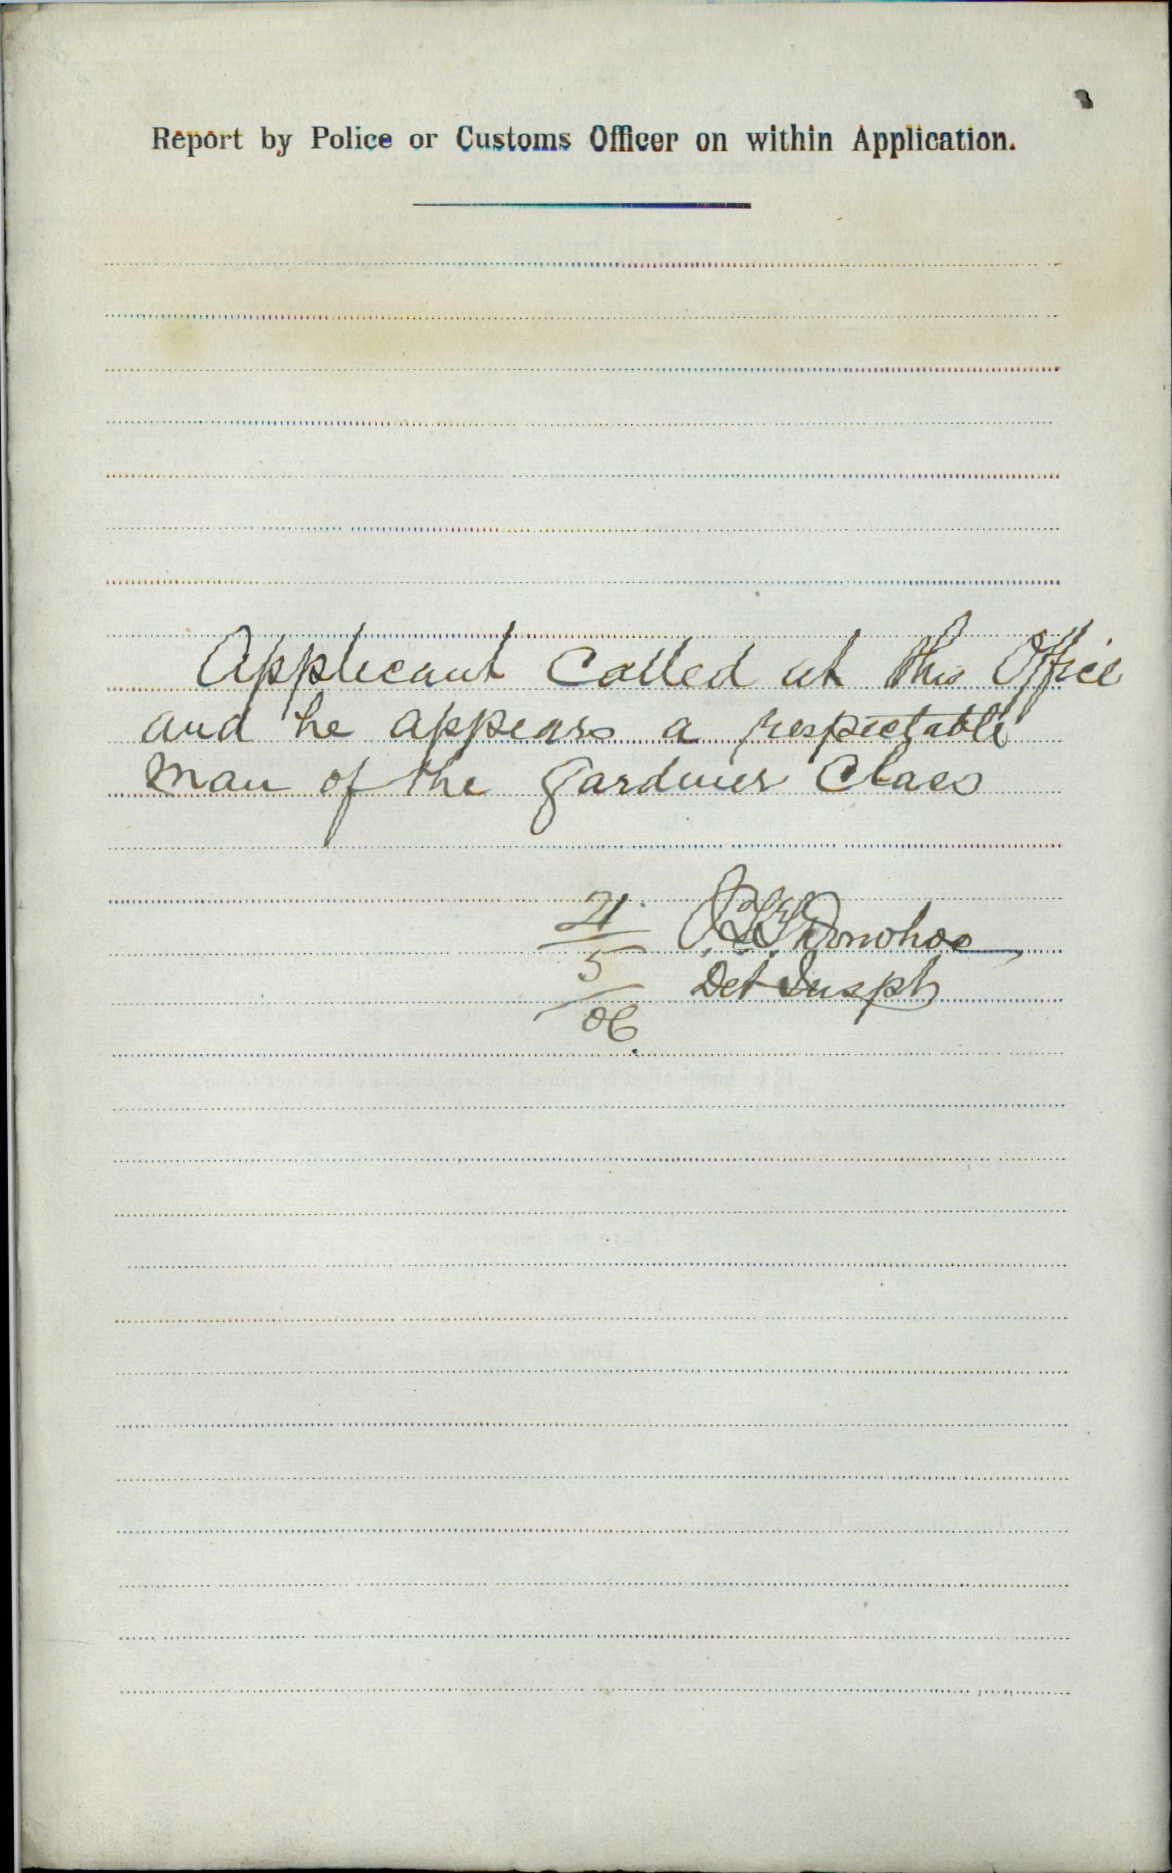 Report by Police or Customs Officer on within Application.
Applicant Called at this Office
and he appears a respectable
Man of the gardiner Class
21
5
06
Donohoe
Det Insph